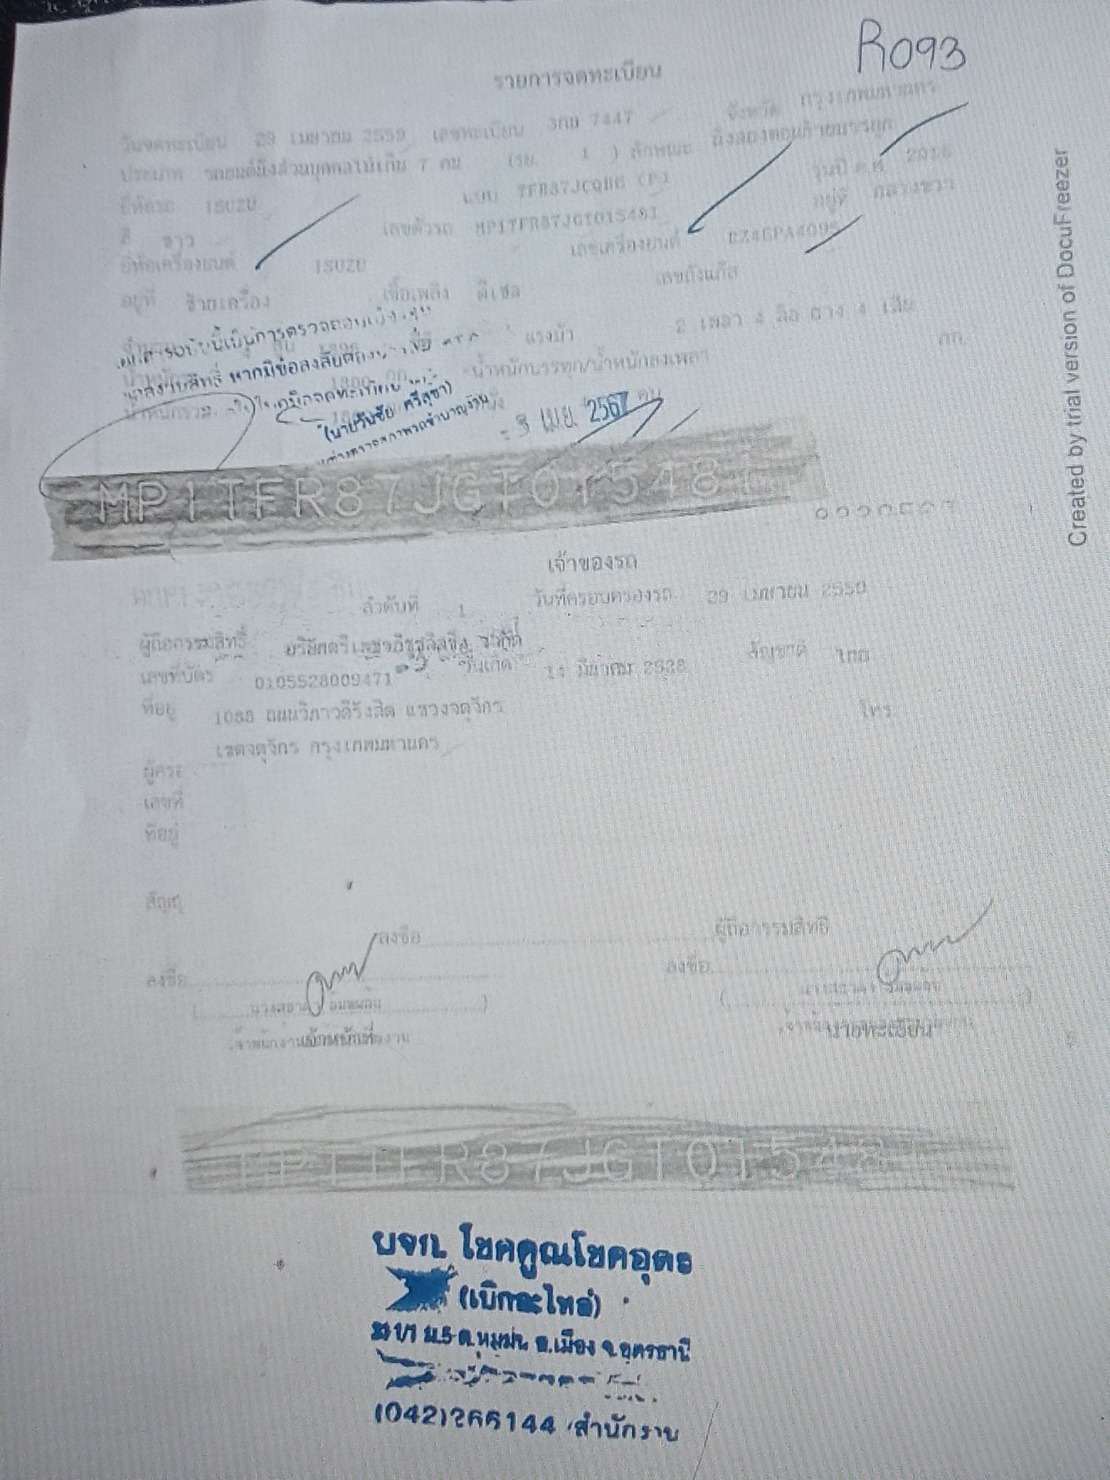 R093
รายการจดทะเบียน
วันจดทะเบียน 29 เมษายน 2559 เลขทะเบียน 3กษ 7447 จังหวัด กรุงเทพมหานคร
ประเภท รถยนต์นั่งส่วนบุคคลไม่เกิน 7 คน (รย. 1 ) ลักษณะ นั่งสองตอนท้ายบรรทุก
ยี่ห้อรถ ISUZU แบบ TFR87JCQHG (P) รุ่นปี ค.ศ. 2016
สี ขาว เลขตัวรถ MP1TFR87JGT015481 อยู่ที่ กลางขวา
ยี่ห้อเครื่องยนต์ ISUZU เลขเครื่องยนต์ RZ4EPA4095
อยู่ที่ ซ้ายเครื่อง เชื้อเพลิง ดีเซล เลขถังแก๊ส
แรงม้า 2 เพลา 4 ล้อ ยาง 4 เส้น
น้ำหนักบรรทุก/น้ำหนักลงเพลา กก.
น้ำหนักรวม
เอกสารฉบับนี้เป็นการตรวจสอบ
หากมีข้อสงสัย
(นายวันชัย ศรีสุชา)
- 3 เม.ย. 2567
MP1TFR87JGT015481
เจ้าของรถ
ลำดับที่ 1 วันที่ครอบครองรถ 29 เมษายน 2559
ผู้ถือกรรมสิทธิ์ บริษัทตรีเพชรอีซูซุลิสซิ่ง จำกัด
เลขที่บัตร 0105528009471 วันเกิด 14 มีนาคม 2528 สัญชาติ ไทย
ที่อยู่ 1088 ถนนวิภาวดีรังสิต แขวงจตุจักร โทร.
เขตจตุจักร กรุงเทพมหานคร
ผู้ครอ
เลขที่
ที่อยู่
สัญญ
ลงชื่อ ผู้ถือกรรมสิทธิ์
ลงชื่อ ลงชื่อ
นายทะเบียน
MP1TFR87JGT01548
ยจก. โชคคูณโชคอุดร
(เบิกอะไหล่)
ม.5 ต.หมูม่น อ.เมือง จ.อุดรธานี
(042)266144 สำนักงาน
Created by trial version of DocuFreezer